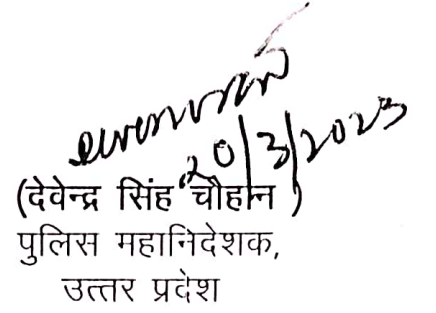 20/3/2023
(देवेन्द्र सिंह चौहान )
पुलिस महानिदेशक,
उत्तर प्रदेश